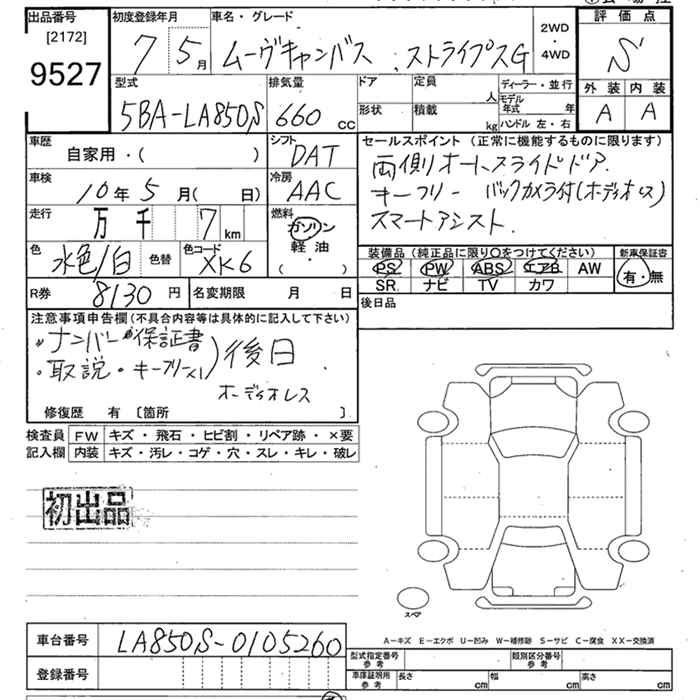 出品番号
[2172]
9527
初度登録年月
7 5月
車名・グレード
ムーヴキャンバス ストライプスG
2WD
・
4WD
評価点
S
外装 内装
A A
型式
5BA-LA850S
排気量
660 cc
ドア
形状
定員 人
積載 kg
ディーラー・並行
モデル年式 年
ハンドル 左・右
車歴
自家用・( )
シフト
DAT
車検
10年5月( 日)
冷房
AAC
走行
万 千 7 km
燃料
ガソリン
軽油
( ・ )
色
水色/白
色替
色コード
XK6
セールスポイント (正常に機能するものに限ります)
両側オートスライドドア
キーフリー バックカメラ付(オーディオレス)
スマートアシスト
装備品 (純正品に限り○をつけてください)
PS PW ABS エアB AW
SR ナビ TV カワ
新車保証書
有・無
後日品
R券
8130円
名変期限 月 日
注意事項申告欄 (不具合内容等は具体的に記入して下さい)
ナンバー 保証書
取説・キーフリー×1 )後日
オーディオレス
修復歴 有 〔箇所 〕
検査員 FW キズ・飛石・ヒビ割・リペア跡・×要
記入欄 内装 キズ・汚レ・コゲ・穴・スレ・キレ・破レ
初出品
スペア
A-キズ E-エクボ U-凹み W-補修跡 S-サビ C-腐食 XX-交換済
車台番号
LA850S-0105260
登録番号
型式指定番号 参考
類別区分番号 参考
車庫証明用 参考
長さ cm 幅 cm 高さ cm